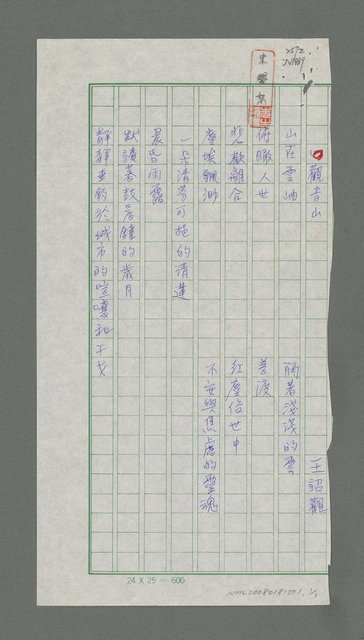 2592
觀音山
王詔觀
山在雲岫
隔著淺淺的雲
俯瞰人世
普渡
悲歡離合
紅塵俗世中
塵埃飄渺
不安與焦慮的靈魂
一朵清芳可挹的清蓮
晨昏雨露
默讀暮鼓晨鐘的歲月
靜靜垂釣於城市的喧囂和干戈
24 X 25 = 600
NMTL20080181501 1/1